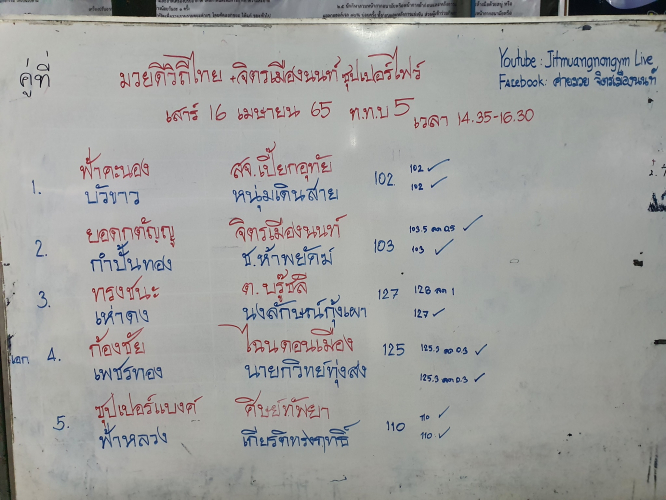 คู่ที่ มวยดีวิถีไทย + จิตรเมืองนนท์ ซุปเปอร์ไฟร์
Youtube : Jitmuangnongym Live
Facebook : ค่ายมวย จิตรเมืองนนท์
เสาร์ 16 เมษายน 65 ท.ท.บ 5 เวลา 14.35-16.30
ฟ้าคะนอง สจ.เปี๊ยกอุทัย 102 ✓
1. 102
บัวขาว หนุ่มเดินสาย 102 ✓
ยอดกตัญญู จิตรเมืองนนท์ 103.5 ลด 0.5 ✓
2. 103
กำปั้นทอง ช.ห้าพยัคฆ์ 103 ✓
ทรงชนะ ต.บรู๊ซลี 128 ลด 1
3. 127
เห่าดง นงลักษณ์กุ้งเผา 127 ✓
ก้องชัย ไฉนดอนเมือง 125.3 ลด 0.3 ✓
เอก 4. 125
เพชรทอง นายกวิทย์ทุ่งสง 125.3 ลด 0.3 ✓
ซุปเปอร์แบงค์ ศิษย์ทัพยา 110 ✓
5. 110
ฟ้าหลวง เกียรติทรงฤทธิ์ 110 ✓